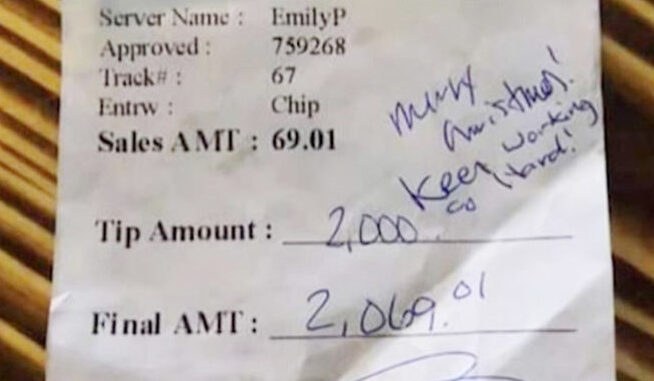 Server Name : EmilyP
Approved : 759268
Track# : 67
Entrw : Chip
Sales AMT : 69.01
Merry
Christmas!
Keep working
so Hard!
Tip Amount : 2,000
Final AMT : 2,069.01